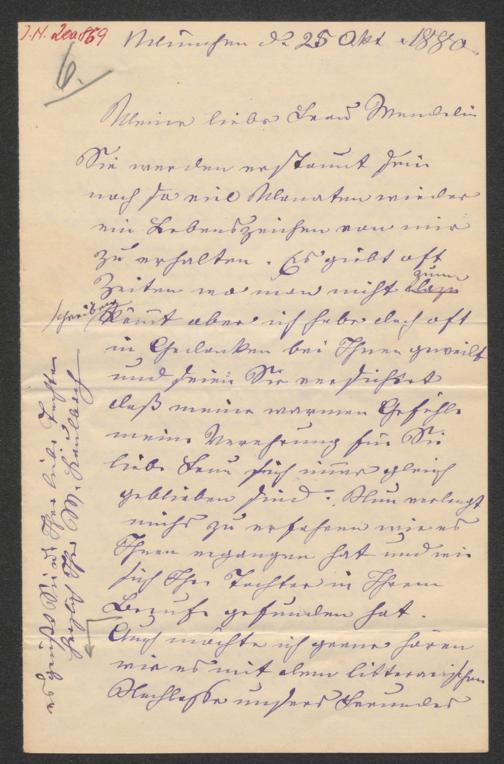 I.N. 200869
München d. 25 Okt. 1880
6.
Meine liebe Frau Wendelin
Sie werden erstaunt sein
nach so viel Monaten wieder
ein Lebenszeichen von mir
zu erhalten. Es giebt oft
Zeiten wo man nicht zum
schreiben kömmt aber ich habe doch oft
in Gedanken bei Ihnen geweilt
und seien Sie versichert
daß meine warmen Gefühle
meine Verehrung für Sie
liebe Frau sich immer gleich
geblieben sind. Nun verlangt
michs zu erfahren wie es
Ihnen ergangen hat und wie
sich Ihre Tochter in Ihrem
Berufe gefunden hat.
Auch möchte ich gerne hören
wie es mit dem litterarischen
Nachlasse unsers Freundes
es grüßt Sie und Ihre liebe Tochter
Kaulbach